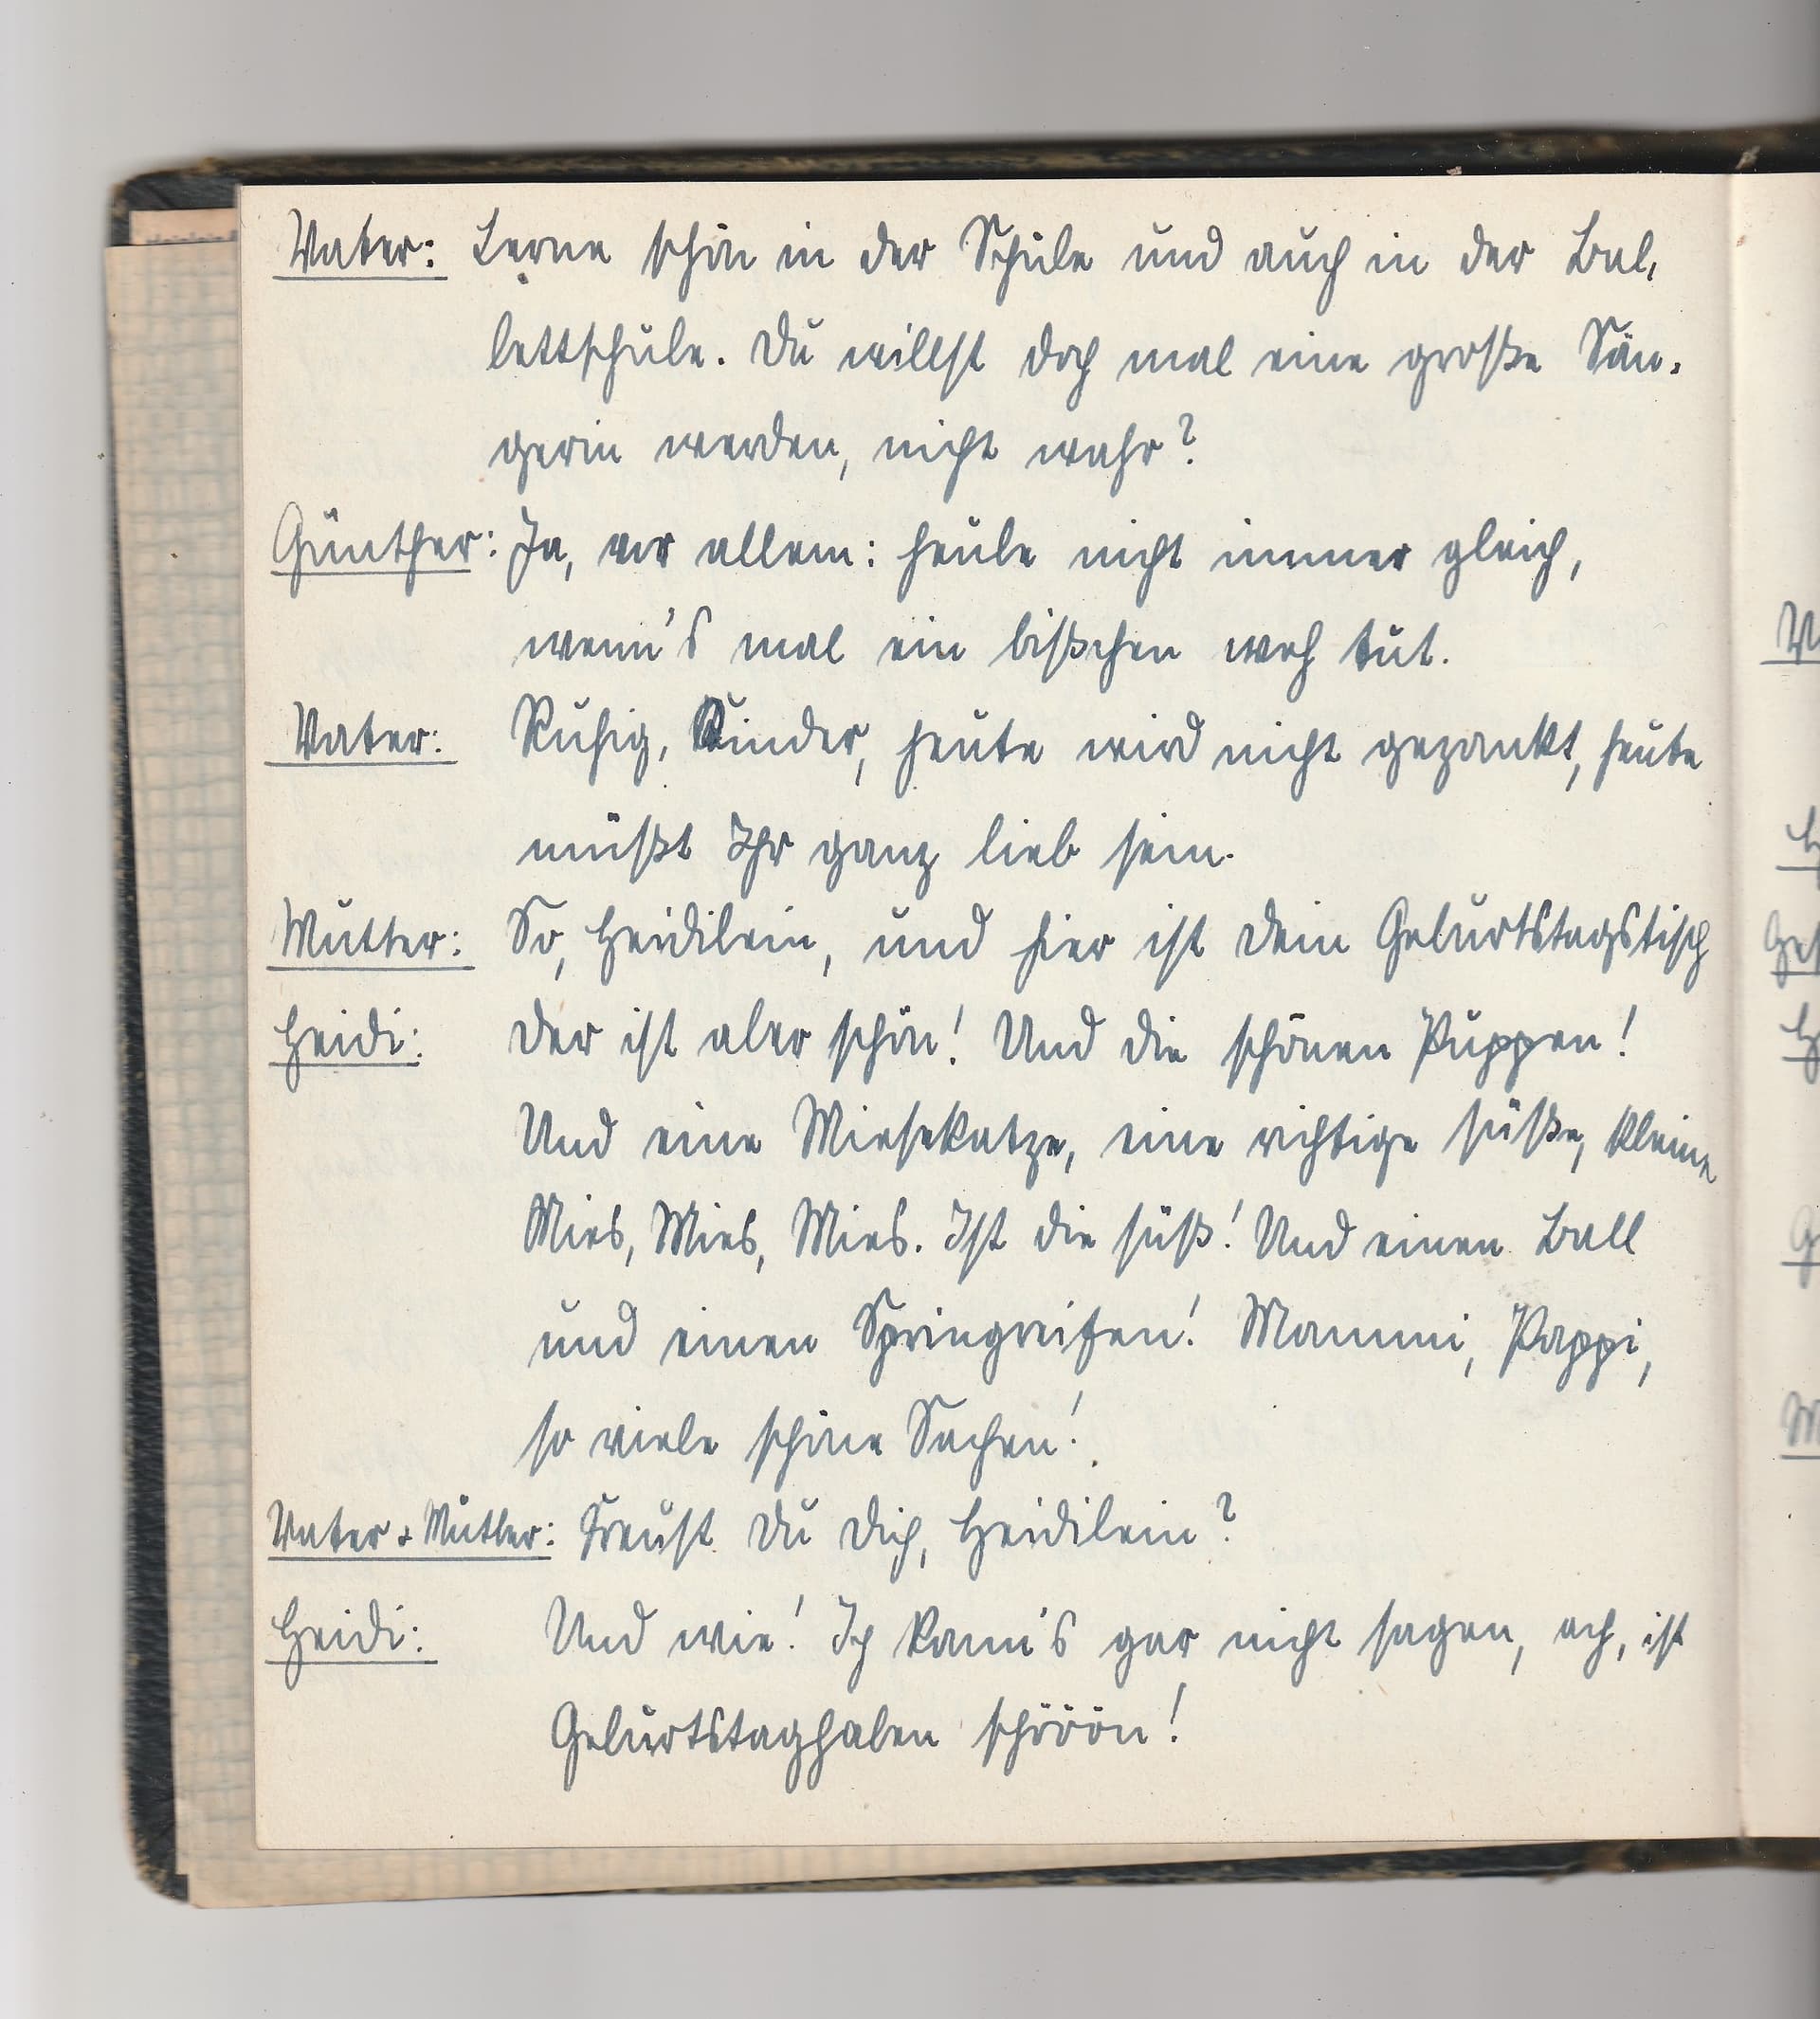 Vater: Lerne schön in der Schule und auch in der Bal-
lettschule. Du willst doch mal eine große Sän-
gerin werden, nicht wahr?
Günther: Ja, vor allem: heule nicht immer gleich,
wenn's mal ein bißchen weh tut.
Vater: Ruhig, Kinder, heute wird nicht gezankt, heute
müßt Ihr ganz lieb sein.
Mutter: So, Heidilein, und hier ist dein Geburtstagstisch
Heidi: Der ist aber schön! Und die schönen Puppen!
Und eine Miesekatze, eine richtige süße, kleine
Mies, Mies, Mies. Ist die süß! Und einen Ball
und einen Springreifen! Mammi, Pappi,
so viele schöne Sachen!
Vater + Mutter: Freust Du Dich, Heidilein?
Heidi: Und wie! Ich kann's gar nicht sagen, ach, ist
Geburtstaghaben schööön!